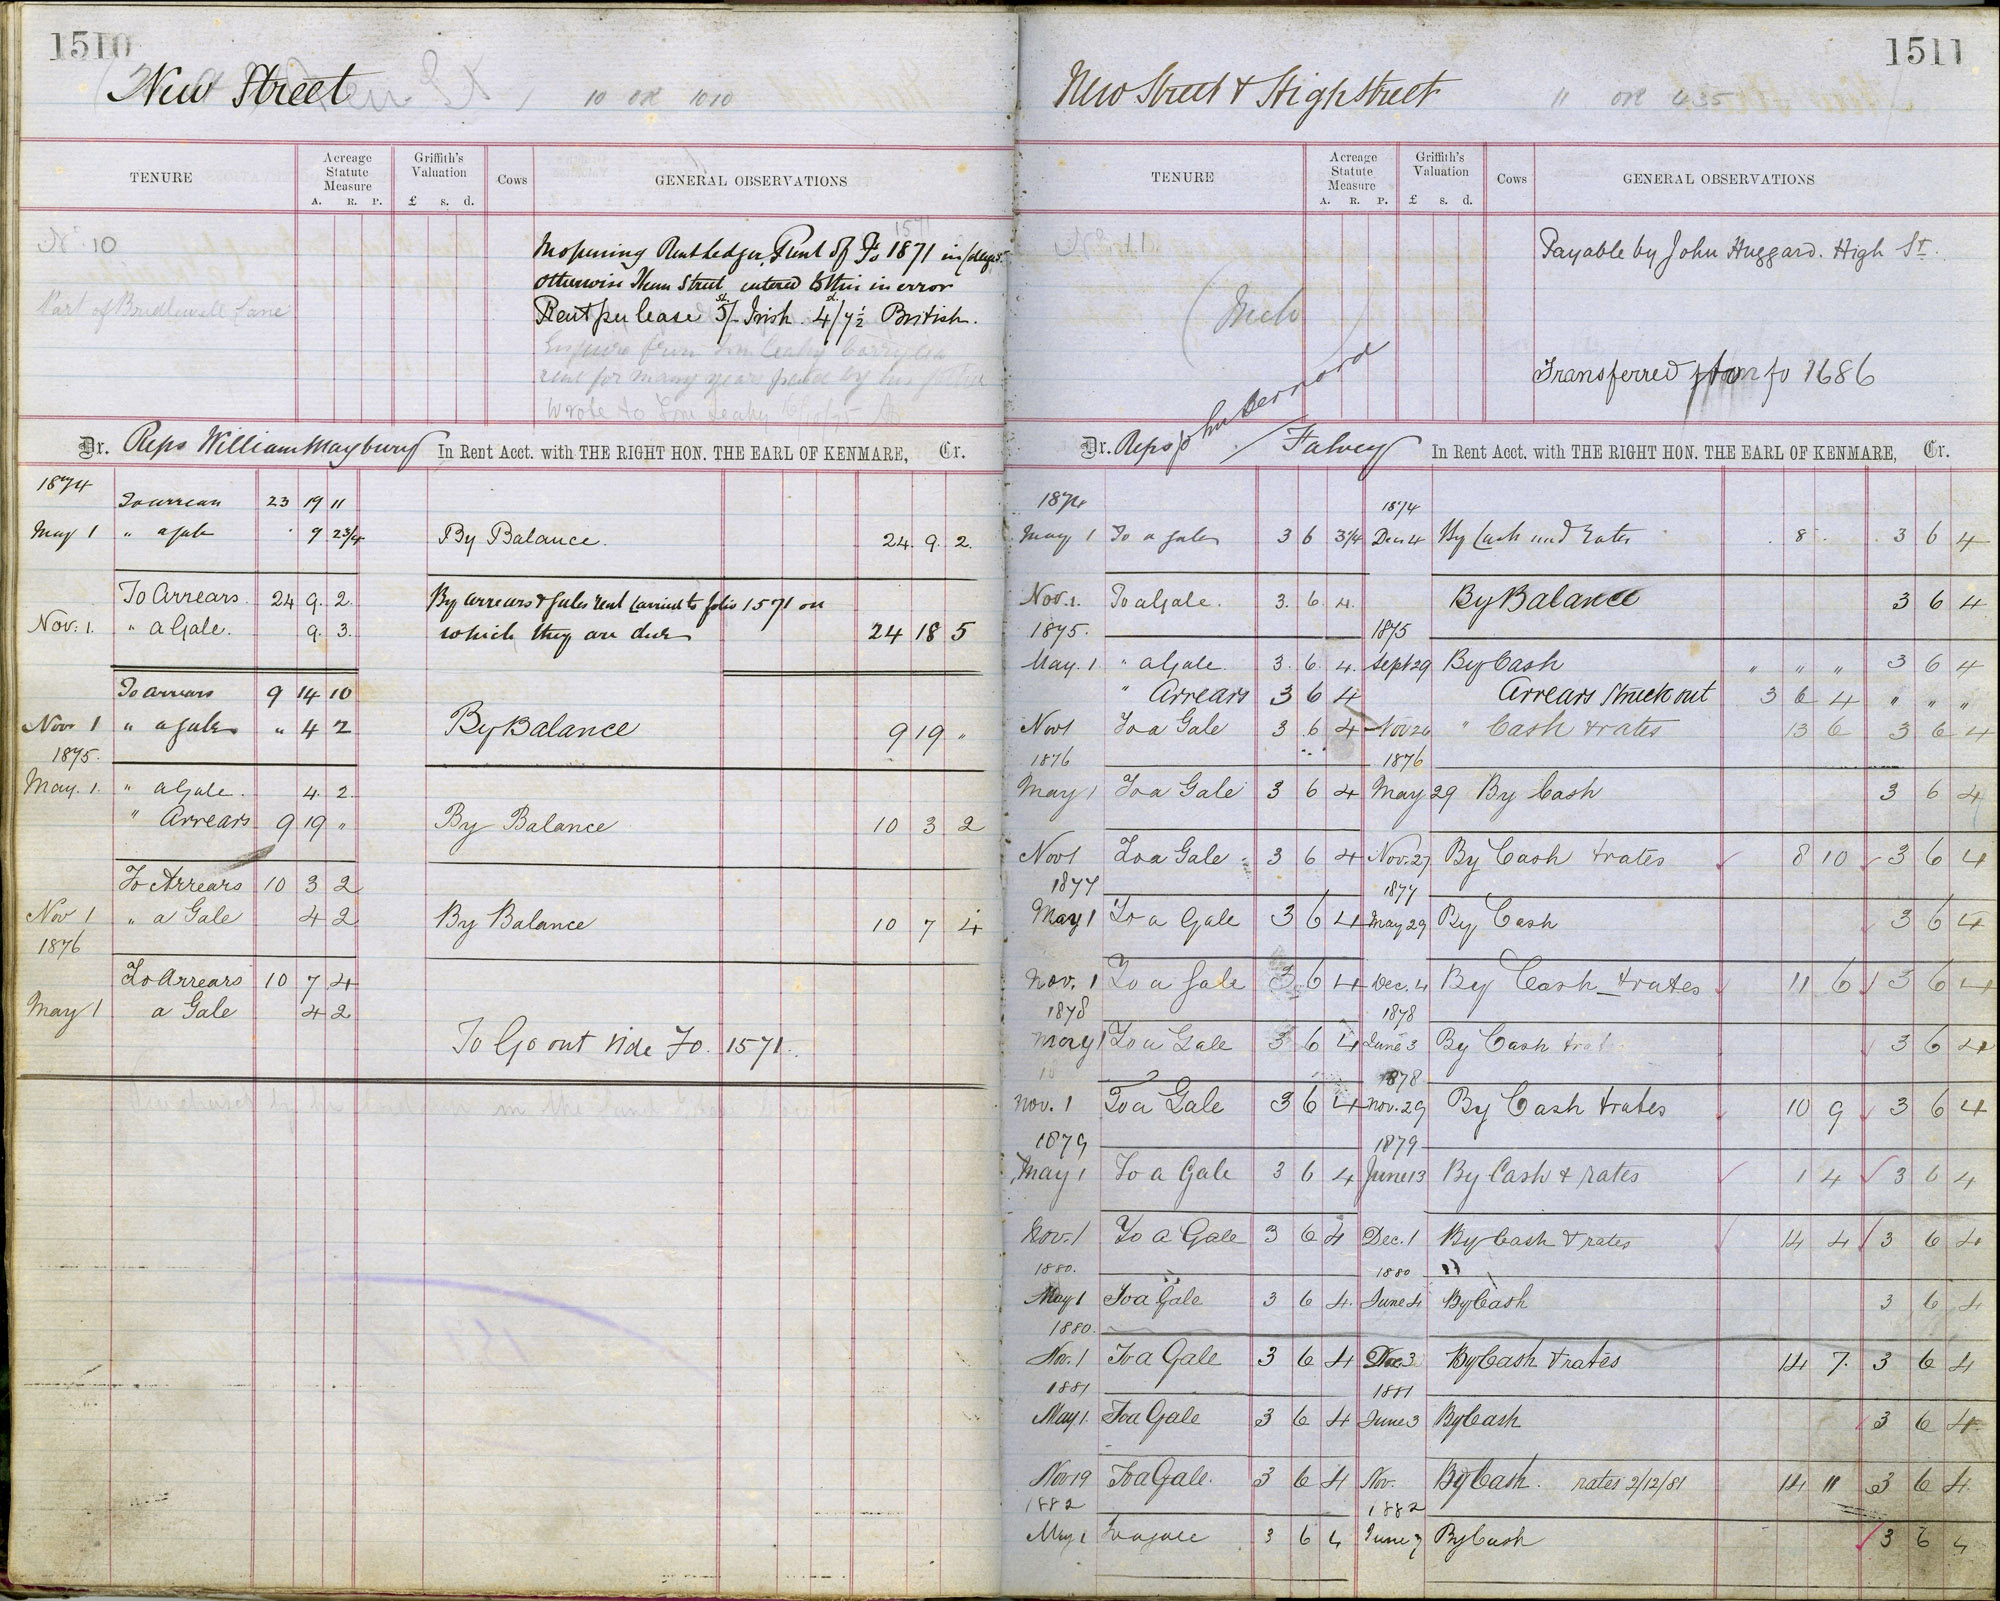 1510
New Street
10 OR 1010
TENURE
Acreage Statute Measure
A. R. P.
Griffith's Valuation
£ s. d.
Cows
GENERAL OBSERVATIONS
1571
No 10
Part of Bridewell Lane
In opening Rent Ledger, Rent of Fo 1871 in
otherwise Hen Street entered to this in error
Rent per lease 5/- Irish 4/7½ British.
rent for many years
Wrote to Tom Leahy
Dr. Reps William Maybury In Rent Acct. with THE RIGHT HON. THE EARL OF KENMARE, Cr.
1874
To arrear 23 19 11
May 1 " a gale 9 23/4 By Balance. 24. 9. 2.
To Arrears. 24 9. 2. By arrears & gales rent carried to folio 1571 on
Nov. 1. " a Gale. 9. 3. which they are due 24 18 5
To arrears 9 14 10
Nov 1 " a gale " 4 2 By Balance 9 19 "
1875.
May. 1. " a Gale. 4. 2.
" Arrears 9 19 " By Balance 10 3 2
To Arrears 10 3 2
Nov 1 " a Gale 4 2 By Balance 10 7 4
1876
To Arrears 10 7 4
May 1 a Gale 4 2
To Go out vide Fo. 1571.
1511
New Street & High Street
11 OR 435
TENURE
Acreage Statute Measure
A. R. P.
Griffith's Valuation
£ s. d.
Cows
GENERAL OBSERVATIONS
No 11
Payable by John Huggard. High St.
Transferred to fo 1686
Dr. Reps John Bernard Falvey In Rent Acct. with THE RIGHT HON. THE EARL OF KENMARE, Cr.
1874 1874
May 1 To a gale 3 6 3/4 Decr 4 By Cash and Rates 8 3 6 4
Nov. 1. To a Gale. 3. 6 4. By Balance 3 6 4
1875. 1875
May. 1. " a Gale. 3. 6. 4. Sept 29 By Cash " " " 3 6 4
" Arrears 3 6 4 Arrears Struck out 3 6 4 " " "
Nov 1 To a Gale 3 6 4 Nov 26 " Cash & rates 13 6 3 6 4
1876 1876
May 1 To a Gale 3 6 4 May 29 By Cash 3 6 4
Nov 1 To a Gale 3 6 4 Nov. 27 By Cash & rates 8 10 3 6 4
1877 1877
May 1 To a Gale 3 6 4 May 29 By Cash 3 6 4
Nov. 1 To a Gale 3 6 4 Dec. 4 By Cash & rates 11 6 3 6 4
1878 1878
May 1 To a Gale 3 6 4 June 3 By Cash 3 6 4
1878
Nov. 1 To a Gale 3 6 4 Nov. 29 By Cash & rates 10 9 3 6 4
1879 1879
May 1 To a Gale 3 6 4 June 13 By Cash & rates 1 4 3 6 4
Nov. 1 To a Gale 3 6 4 Dec. 1 By Cash & rates 14 4 3 6 4
1880. 1880
May 1 To a Gale 3 6 4. June 4 By Cash 3 6 4
1880.
Nov. 1 To a Gale 3 6 4 Dec 3 By Cash & rates 14 7. 3 6 4
1881 1881
May 1. To a Gale 3 6 4 June 3 By Cash 3 6 4
Nov 19 To a Gale. 3 6 4 Nov. By Cash. rates 2/12/81 14 11 3 6 4
1882 1882
May 1 To a gale 3 6 4 June 7 By Cash 3 6 4